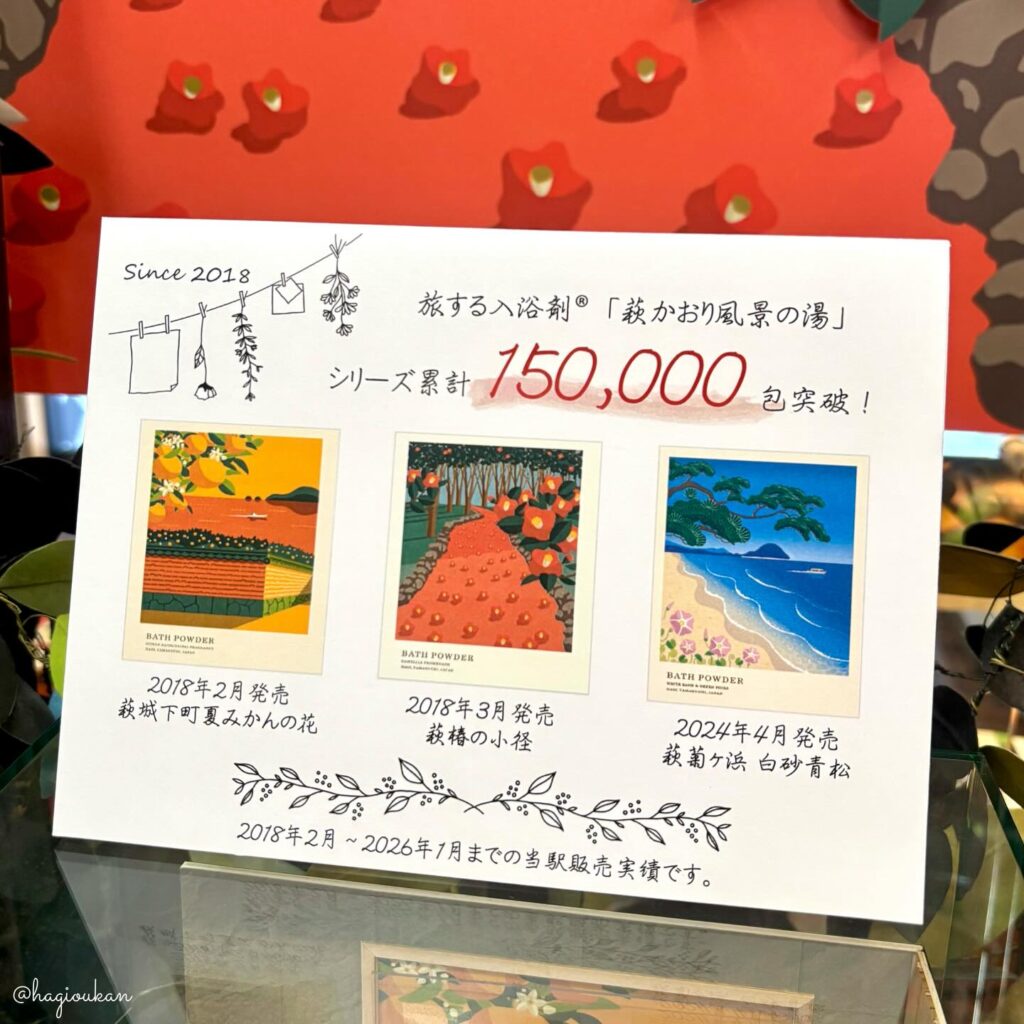 Since 2018
旅する入浴剤®「萩かおり風景の湯」
シリーズ累計 150,000 包突破！
BATH POWDER
HAGI, YAMAGUCHI, JAPAN
2018年2月発売
萩城下町夏みかんの花
BATH POWDER
CAMELLIA PROMENADE
HAGI, YAMAGUCHI, JAPAN
2018年3月発売
萩椿の小径
BATH POWDER
WHITE SAND & GREEN PINES
HAGI, YAMAGUCHI, JAPAN
2024年4月発売
萩菊ヶ浜 白砂青松
2018年2月～2026年1月までの当駅販売実績です。
@hagioukan